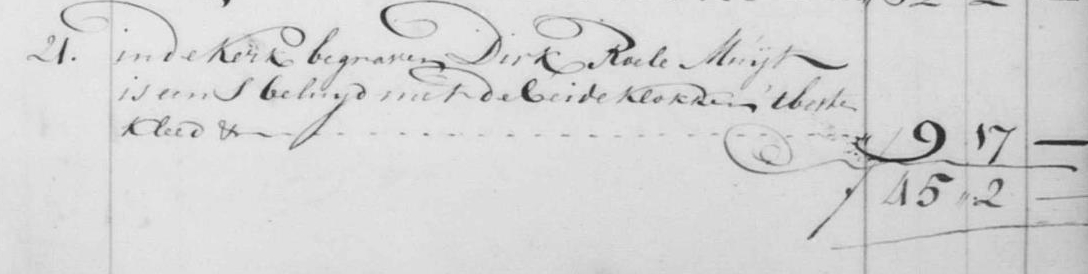 21. in de Kerk begraven Dirk Roele Muijt
is eens beluyd met de beide klokken 't beste
kleed &c 9 17 —
45 " 2 —